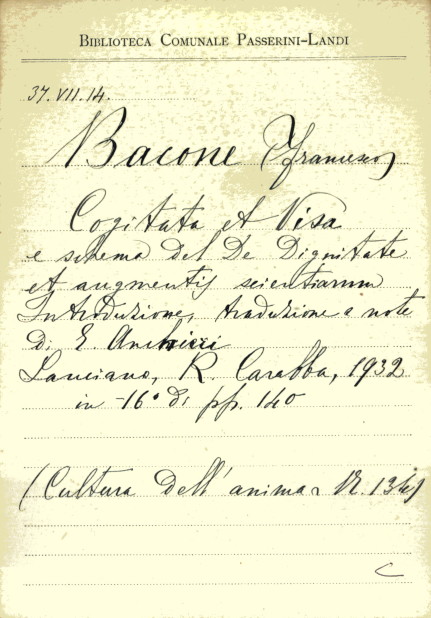 BIBLIOTECA COMUNALE PASSERINI-LANDI
37.VII.14.
Bacone Francesco
Cogitata et Visa
e schema del De Dignitate
et augmentis scientiarum
Introduzione, traduzione e note
di E.
Lanciano, R. Carabba, 1932
in -16° di pp. 140
(Cultura dell'anima N.
C